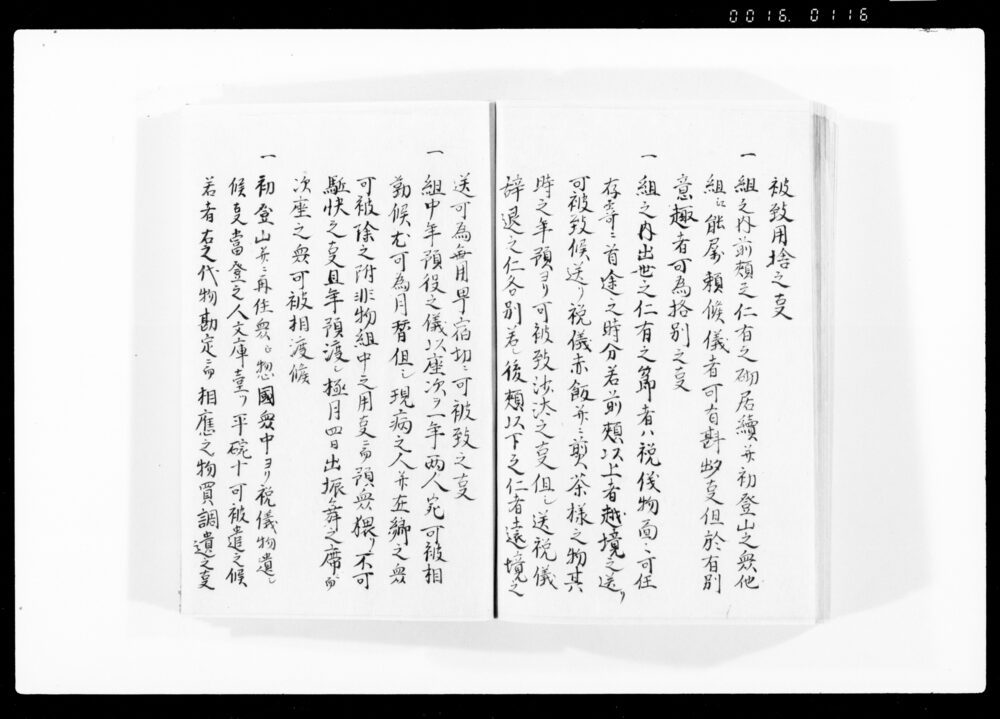 0016. 0116
被致用捨之叓
一 組之内前頬之仁有之砌居續并初登山之衆他
組江能属頼候儀者可有斟酌叓但於有別
意趣者可為格別之叓
一 組之内出世之仁有之節者ハ祝儀物面々可任
存寄ニ首途之時分若前頬以上者越境之送リ
可被致候送リ祝儀赤飯并ニ煎茶様之物其
時之年預ヨリ可被致沙汰之叓但シ送祝儀
辞退之仁各別若シ後頬以下之仁者土遠境之
送可為無用早宿切ニ可被致之叓
一 組中年預役之儀以座次ヲ一年両人宛可被相
勤候尤可為月番但シ現病之人并在郷之衆
可被除之附非物組中之用叓ニ而預衆猥リ不可
駈快之叓且年預渡シ極月四日出振舞之席ニ而
次座之衆可被相渡候
一 初登山并ニ再住衆ヘ惣國衆中ヨリ祝儀物遣シ
候叓當登之人文庫壹ツ平碗十可被遣之候
若者右之代物勘定ニ而相應之物買調遣之叓